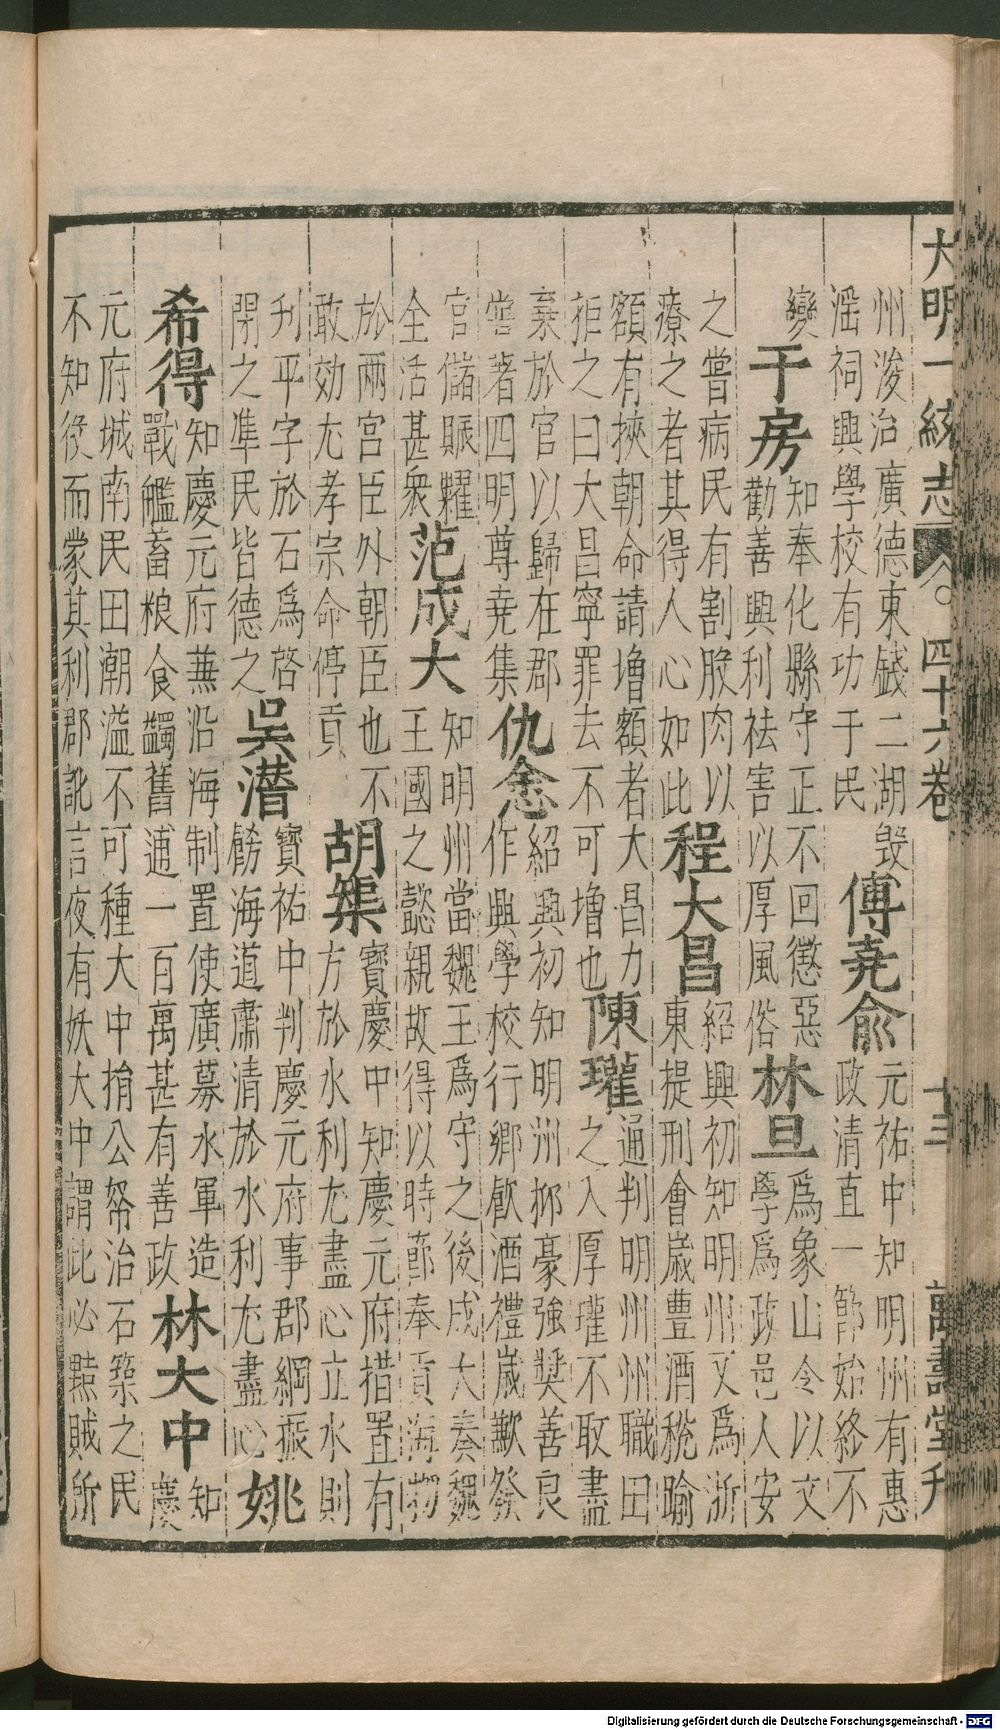 大明一統志 四十六卷 十三 萬壽堂刋
州浚治廣德東錢二湖毀
淫祠興學校有功于民
傅堯俞
元祐中知明州有惠
政清直一節始終不
變
于房
知奉化縣守正不回懲惡
勸善興利祛害以厚風俗
林旦
爲象山令以文
學爲政邑人安
之嘗病民有割股肉以
療之者其得人心如此
程大昌
紹興初知明州又爲浙
東提刑會歲豊酒稅踰
額有挾朝命請增額者大昌力
拒之曰大昌寧罪去不可增也
陳瓘
通判明州州職田
之入厚瓘不取盡
棄於官以歸在郡
嘗著四明尊堯集
仇悆
紹興初知明州抑豪強奬善良
作興學校行鄉飲酒禮歲歉發
官儲賑糶
全活甚衆
范成大
知明州當魏王爲守之後成大奏魏
王國之懿親故得以時節奉貢海物
於兩宮臣外朝臣也不
敢効尤孝宗命停貢
胡榘
寳慶中知慶元府措置有
方於水利尤盡心立水則
刋平字於石爲啓
閉之準民皆德之
吳潛
寳祐中判慶元府事郡綱振
飭海道肅清於水利尤盡心
姚
希得
知慶元府蕪沿海制置使廣募水軍造
戰艦蓄粮食蠲舊逋一百萬甚有善政
林大中
知
慶
元府城南民田潮溢不可種大中捐公帑治石築之民
不知役而蒙其利郡訛言夜有妖大中謂此必黠賊所
Digitalisierung gefördert durch die Deutsche Forschungsgemeinschaft - DFG